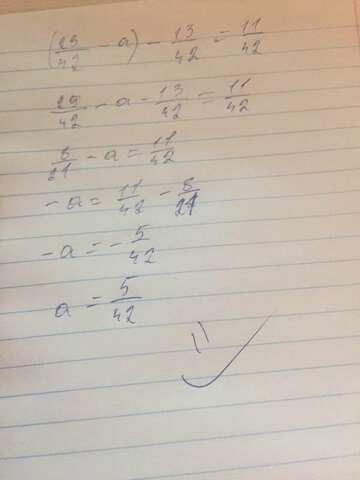 (29/42 - a) - 13/42 = 11/42
29/42 - a - 13/42 = 11/42
8/21 - a = 11/42
-a = 11/42 - 8/21
-a = -5/42
a = 5/42